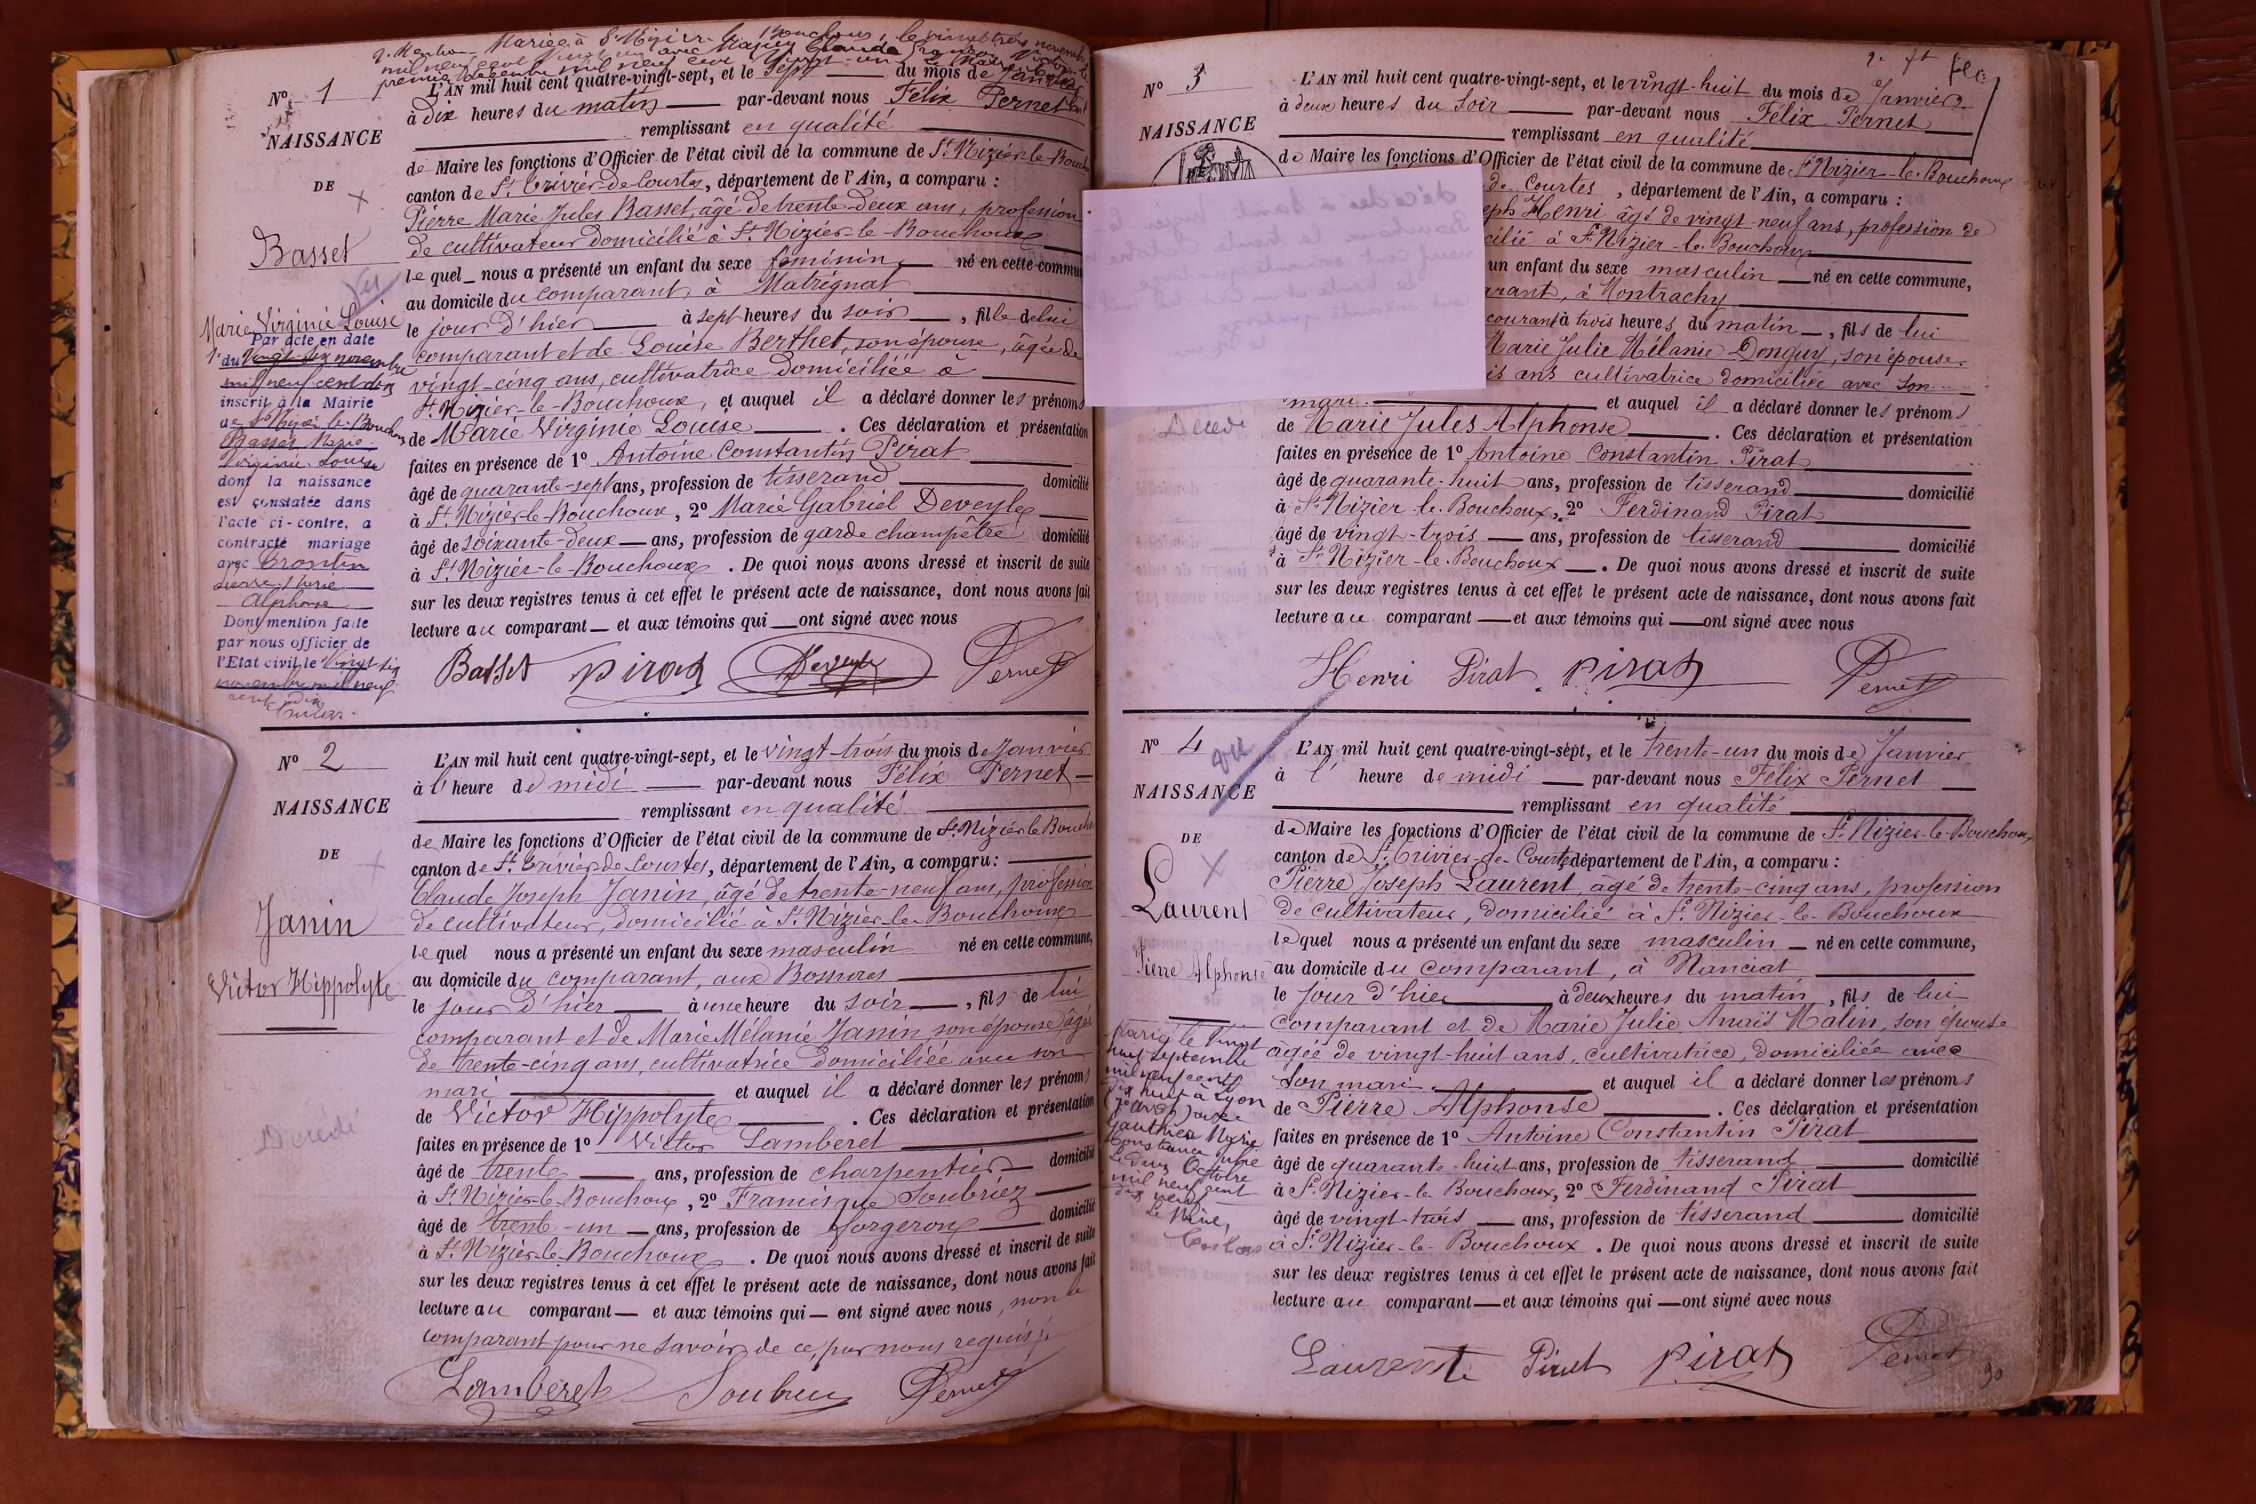 2e Mention - Mariée à St Nizier le Bouchoux, le vingt trois novembre
mil neuf cent vingt un avec
premier décembre mil neuf cent vingt-un Le Maire
No 1
NAISSANCE
DE
Basset
Vu
Marie Virginie Louise
Par acte en date
1° du vingt six novembre
mil neuf cent dix
inscrit à la Mairie
de St Nizier le Bouchoux
Basset Marie
Virginie Louise
dont la naissance
est constatée dans
l'acte ci-contre, a
contracté mariage
avec
Pierre Marie
Alphonse
Dont mention faite
par nous officier de
l'Etat civil, le vingt six
novembre mil neuf
cent dix
L'AN mil huit cent quatre-vingt-sept, et le Sept du mois de Janvier
à dix heures du matin par-devant nous Félix Pernet
remplissant en qualité
de Maire les fonctions d'Officier de l'état civil de la commune de St Nizier-le-Bouchoux
canton de St Trivier-de-Courtes, département de l'Ain, a comparu :
Pierre Marie Jules Basset, âgé de trente-deux ans, profession
de cultivateur domicilié à St Nizier-le-Bouchoux
lequel nous a présenté un enfant du sexe féminin né en cette commune
au domicile du comparant, à Matrignat
le jour d'hier à sept heures du soir, fille de lui
comparant et de Louise Berthet, son épouse, âgée de
vingt-cinq ans, cultivatrice domiciliée à
St Nizier-le-Bouchoux, et auquel il a déclaré donner les prénoms
de Marie Virginie Louise. Ces déclaration et présentation
faites en présence de 1° Antoine Constantin Pirat
âgé de quarante-sept ans, profession de tisserand domicilié
à St Nizier-le-Bouchoux, 2° Marie Gabriel Deveyle
âgé de soixante-deux ans, profession de garde champêtre domicilié
à St Nizier-le-Bouchoux. De quoi nous avons dressé et inscrit de suite
sur les deux registres tenus à cet effet le présent acte de naissance, dont nous avons fait
lecture au comparant et aux témoins qui ont signé avec nous
Basset Pirat Deveyle Pernet
No 2
NAISSANCE
DE
Janin
Victor Hippolyte
Décédé
L'AN mil huit cent quatre-vingt-sept, et le vingt-trois du mois de Janvier
à l'heure de midi par-devant nous Félix Pernet
remplissant en qualité
de Maire les fonctions d'Officier de l'état civil de la commune de St Nizier-le-Bouchoux
canton de St Trivier-de-Courtes, département de l'Ain, a comparu :
Claude Joseph Janin, âgé de trente-neuf ans, profession
de cultivateur, domicilié à St Nizier-le-Bouchoux
lequel nous a présenté un enfant du sexe masculin né en cette commune,
au domicile du comparant, aux
le jour d'hier à une heure du soir, fils de lui
comparant et de Marie Mélanie Janin, son épouse, âgée
de trente-cinq ans, cultivatrice domiciliée avec son
mari et auquel il a déclaré donner les prénoms
de Victor Hippolyte. Ces déclaration et présentation
faites en présence de 1° Victor Lamberet
âgé de trente ans, profession de charpentier domicilié
à St Nizier-le-Bouchoux, 2° Francisque Soubriez
âgé de trente-un ans, profession de forgeron domicilié
à St Nizier-le-Bouchoux. De quoi nous avons dressé et inscrit de suite
sur les deux registres tenus à cet effet le présent acte de naissance, dont nous avons fait
lecture au comparant et aux témoins qui ont signé avec nous, non le
comparant pour ne savoir, de ce, par nous requis
Lamberet Pernet
No 3
NAISSANCE
Décédé
L'AN mil huit cent quatre-vingt-sept, et le vingt-huit du mois de Janvier
à deux heures du soir par-devant nous Félix Pernet
remplissant en qualité
de Maire les fonctions d'Officier de l'état civil de la commune de St Nizier-le-Bouchoux
de Courtes, département de l'Ain, a comparu :
Henri âgé de vingt-neuf ans, profession de
à St Nizier-le-Bouchoux
un enfant du sexe masculin né en cette commune,
à Montrachy
courant à trois heures du matin, fils de lui
Marie Julie Mélanie Donguy, son épouse
ans cultivatrice domiciliée avec son
mari. et auquel il a déclaré donner les prénoms
de Marie Jules Alphonse. Ces déclaration et présentation
faites en présence de 1° Antoine Constantin Pirat
âgé de quarante-huit ans, profession de tisserand domicilié
à St Nizier-le-Bouchoux, 2° Ferdinand Pirat
âgé de vingt-trois ans, profession de tisserand domicilié
à St Nizier-le-Bouchoux. De quoi nous avons dressé et inscrit de suite
sur les deux registres tenus à cet effet le présent acte de naissance, dont nous avons fait
lecture au comparant et aux témoins qui ont signé avec nous
Henri Pirat Pirat Pernet
No 4
vu
NAISSANCE
DE
Laurent
Pierre Alphonse
Marié le vingt
huit septembre
mil neuf cent
dix huit à Lyon
avec
Gauthier Marie
Constance
Le deux Octobre
mil neuf cent
Le Maire,
L'AN mil huit cent quatre-vingt-sept, et le trente-un du mois de Janvier
à l'heure de midi par-devant nous Félix Pernet
remplissant en qualité
de Maire les fonctions d'Officier de l'état civil de la commune de St Nizier-le-Bouchoux
canton de St Trivier-de-Courtes département de l'Ain, a comparu :
Pierre Joseph Laurent, âgé de trente-cinq ans, profession
de cultivateur, domicilié à St Nizier-le-Bouchoux
lequel nous a présenté un enfant du sexe masculin né en cette commune,
au domicile du comparant, à Nanciat
le jour d'hier à deux heures du matin, fils de lui
comparant et de Marie Julie Anaïs Malin, son épouse
âgée de vingt-huit ans, cultivatrice, domiciliée avec
son mari. et auquel il a déclaré donner les prénoms
de Pierre Alphonse. Ces déclaration et présentation
faites en présence de 1° Antoine Constantin Pirat
âgé de quarante-huit ans, profession de tisserand domicilié
à St Nizier-le-Bouchoux, 2° Ferdinand Pirat
âgé de vingt-trois ans, profession de tisserand domicilié
à St Nizier-le-Bouchoux. De quoi nous avons dressé et inscrit de suite
sur les deux registres tenus à cet effet le présent acte de naissance, dont nous avons fait
lecture au comparant et aux témoins qui ont signé avec nous
Laurent Pirat Pirat Pernet